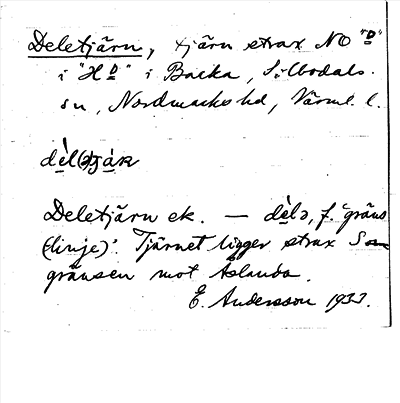 Deletjärn, tjärn strax NO "D"
i "H D" i Backa, Silbodals
sn, Nordmarks hd, Värml. l.
Deletjärn ek. — dèlə, f. "gräns
(linje)". Tjärnet ligger strax S om
gränsen mot Åslanda.
E. Andersson 1933.